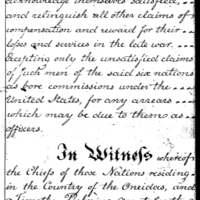 acknowledge themselves satisfied,
and relinquish all other claims of
compensation and reward for their
losses and services in the late war.
Excepting only the unsatisfied claims
of such men of the said six nations
as bore commissions under the
United States, for any arrears
which may be due to them as
officers.
In Witness whereof
the Chiefs of those Nations residing
in the Country of the Oneidas, and